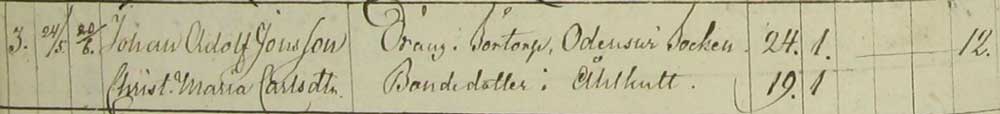 3. 24/5 20/6. Johan Adolf Jonsson Dräng i Törtorp, Odensvi Socken. 24. 1. 12.
Christ. Maria Carlsdtr. Bondedotter i Åhlhult. 19. 1